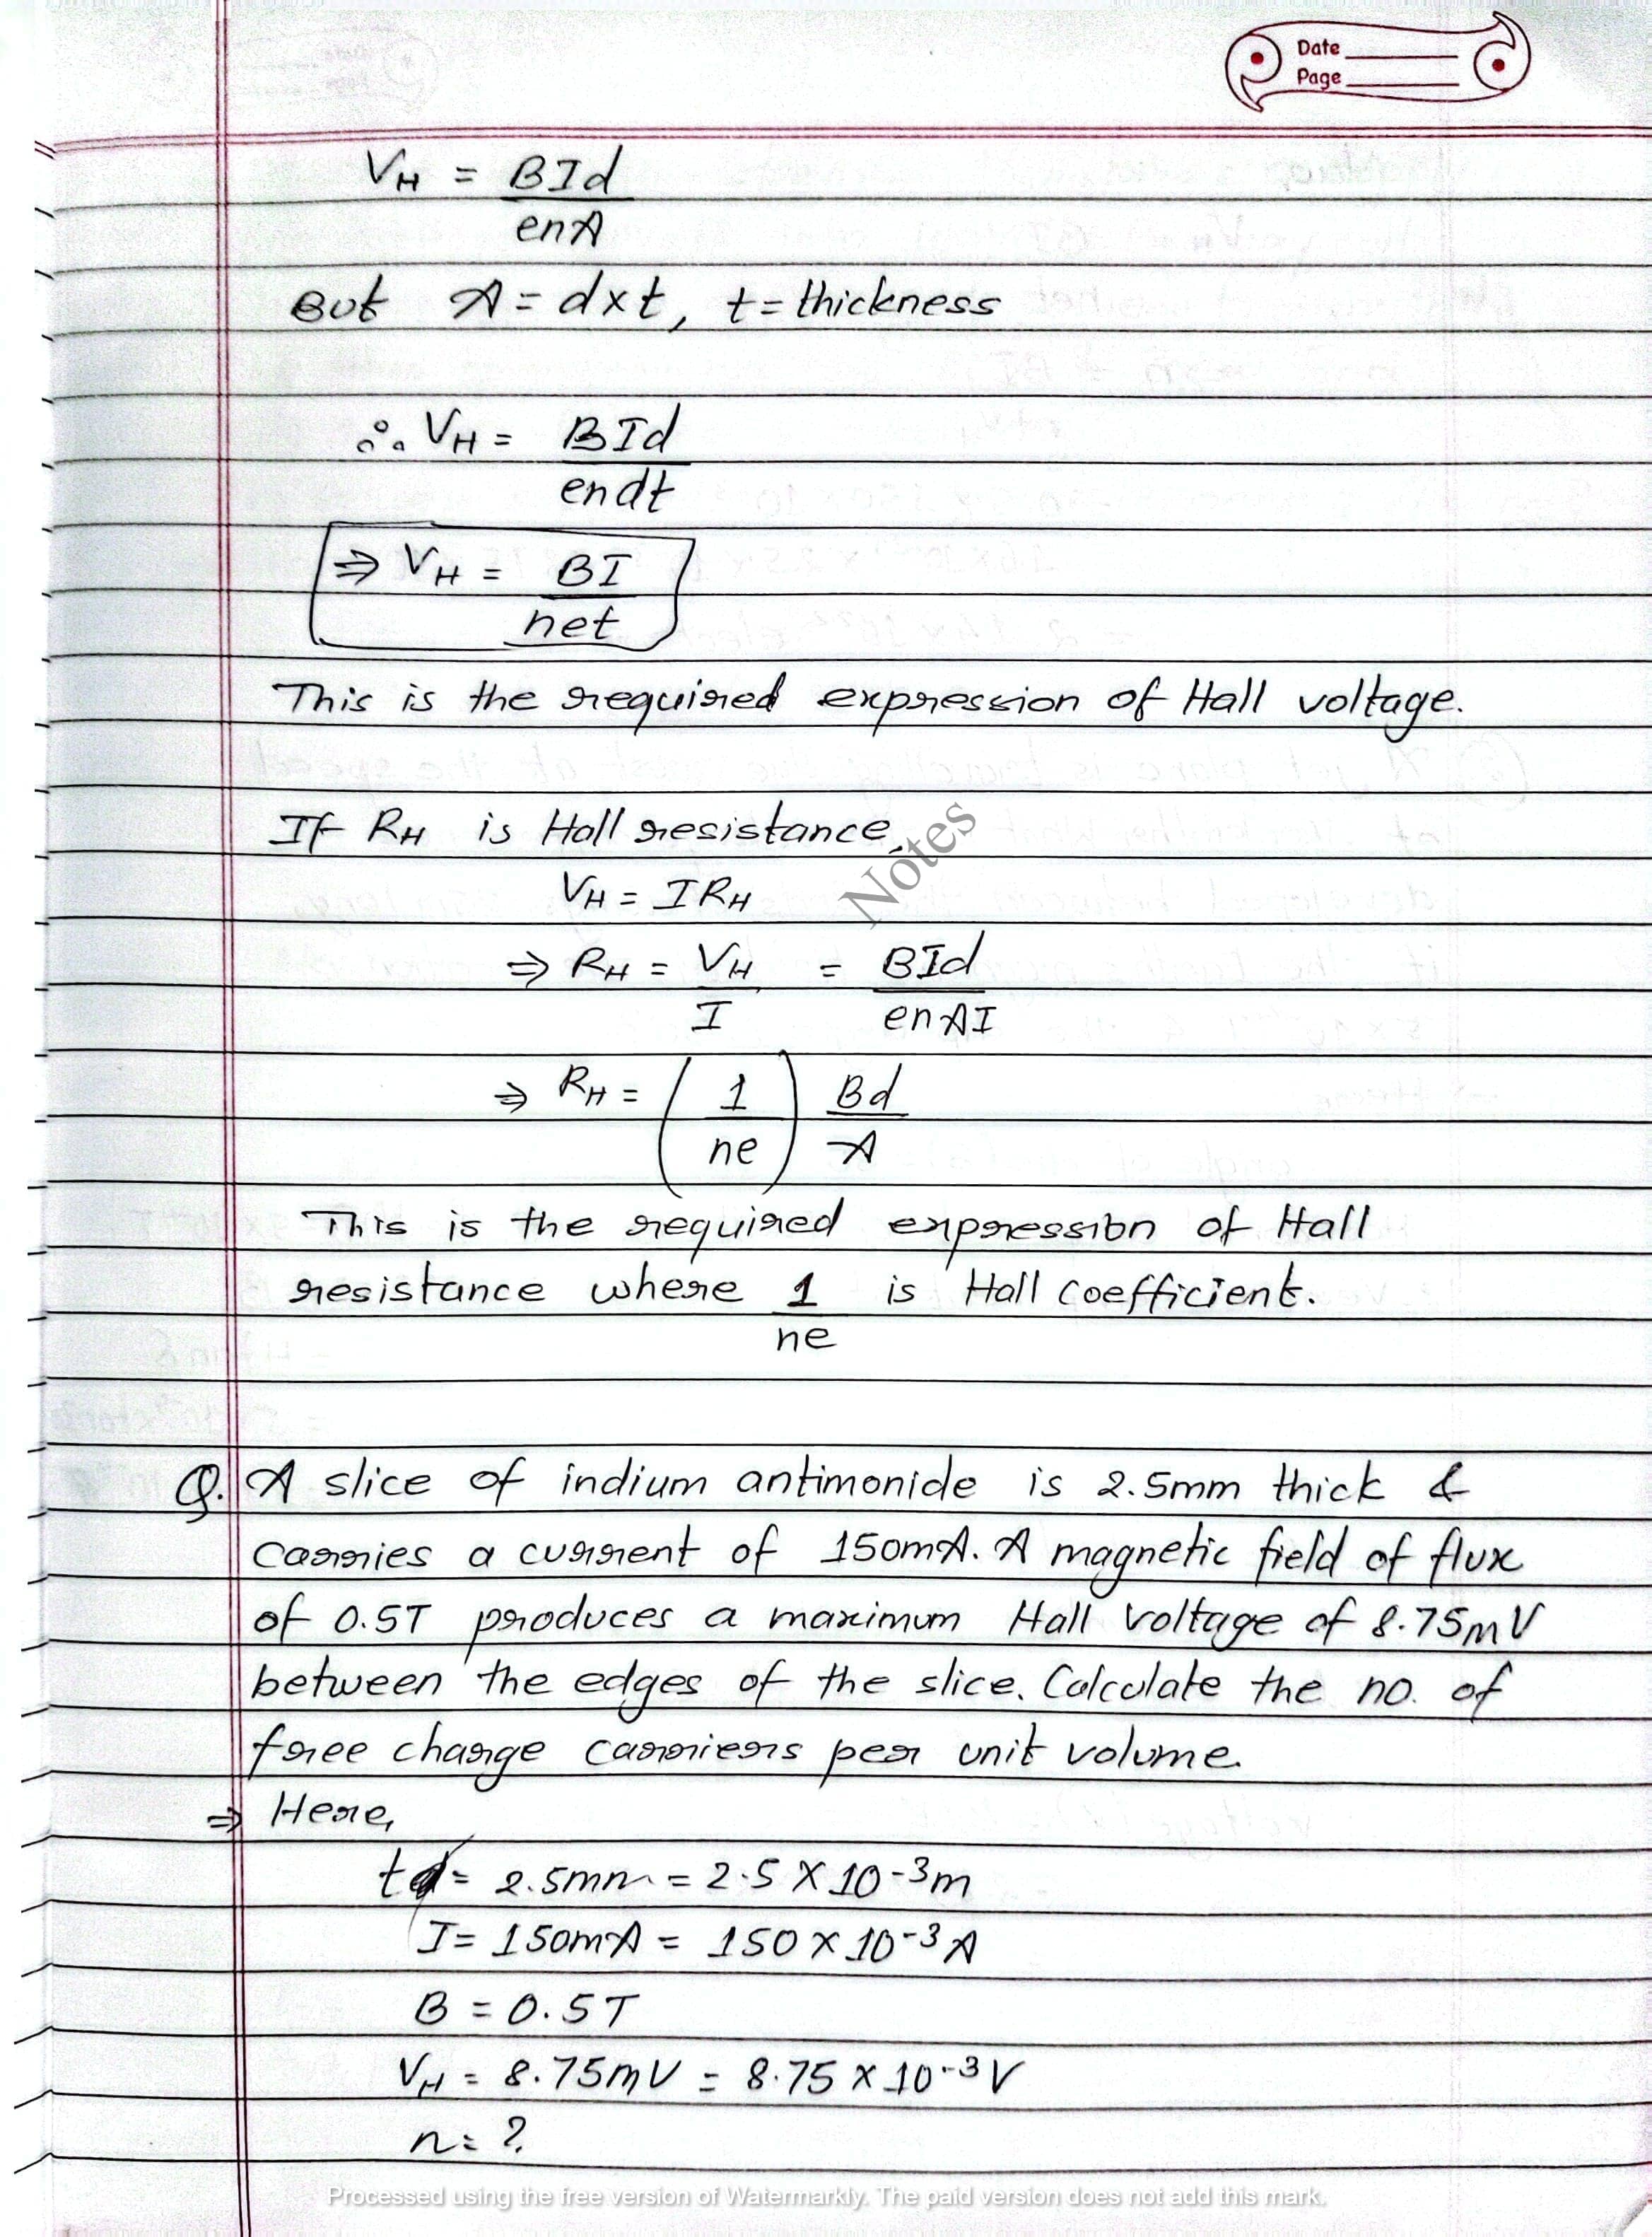 Date
Page
V_H = BId / enA
But A = d×t, t = thickness
∴ V_H = BId / endt
⇒ V_H = BI / net
This is the required expression of Hall voltage.
If R_H is Hall resistance,
Notes
V_H = IR_H
⇒ R_H = V_H / I = BId / enAI
⇒ R_H = (1 / ne) Bd / A
This is the required expression of Hall
resistance where 1/ne is Hall coefficient.
Q. A slice of indium antimonide is 2.5mm thick &
carries a current of 150mA. A magnetic field of flux
of 0.5T produces a maximum Hall voltage of 8.75mV
between the edges of the slice. Calculate the no. of
free charge carriers per unit volume.
⇒ Here,
t = 2.5mm = 2.5 × 10⁻³m
I = 150mA = 150 × 10⁻³A
B = 0.5T
V_H = 8.75mV = 8.75 × 10⁻³V
n = ?
Processed using the free version of Watermarkly. The paid version does not add this mark.